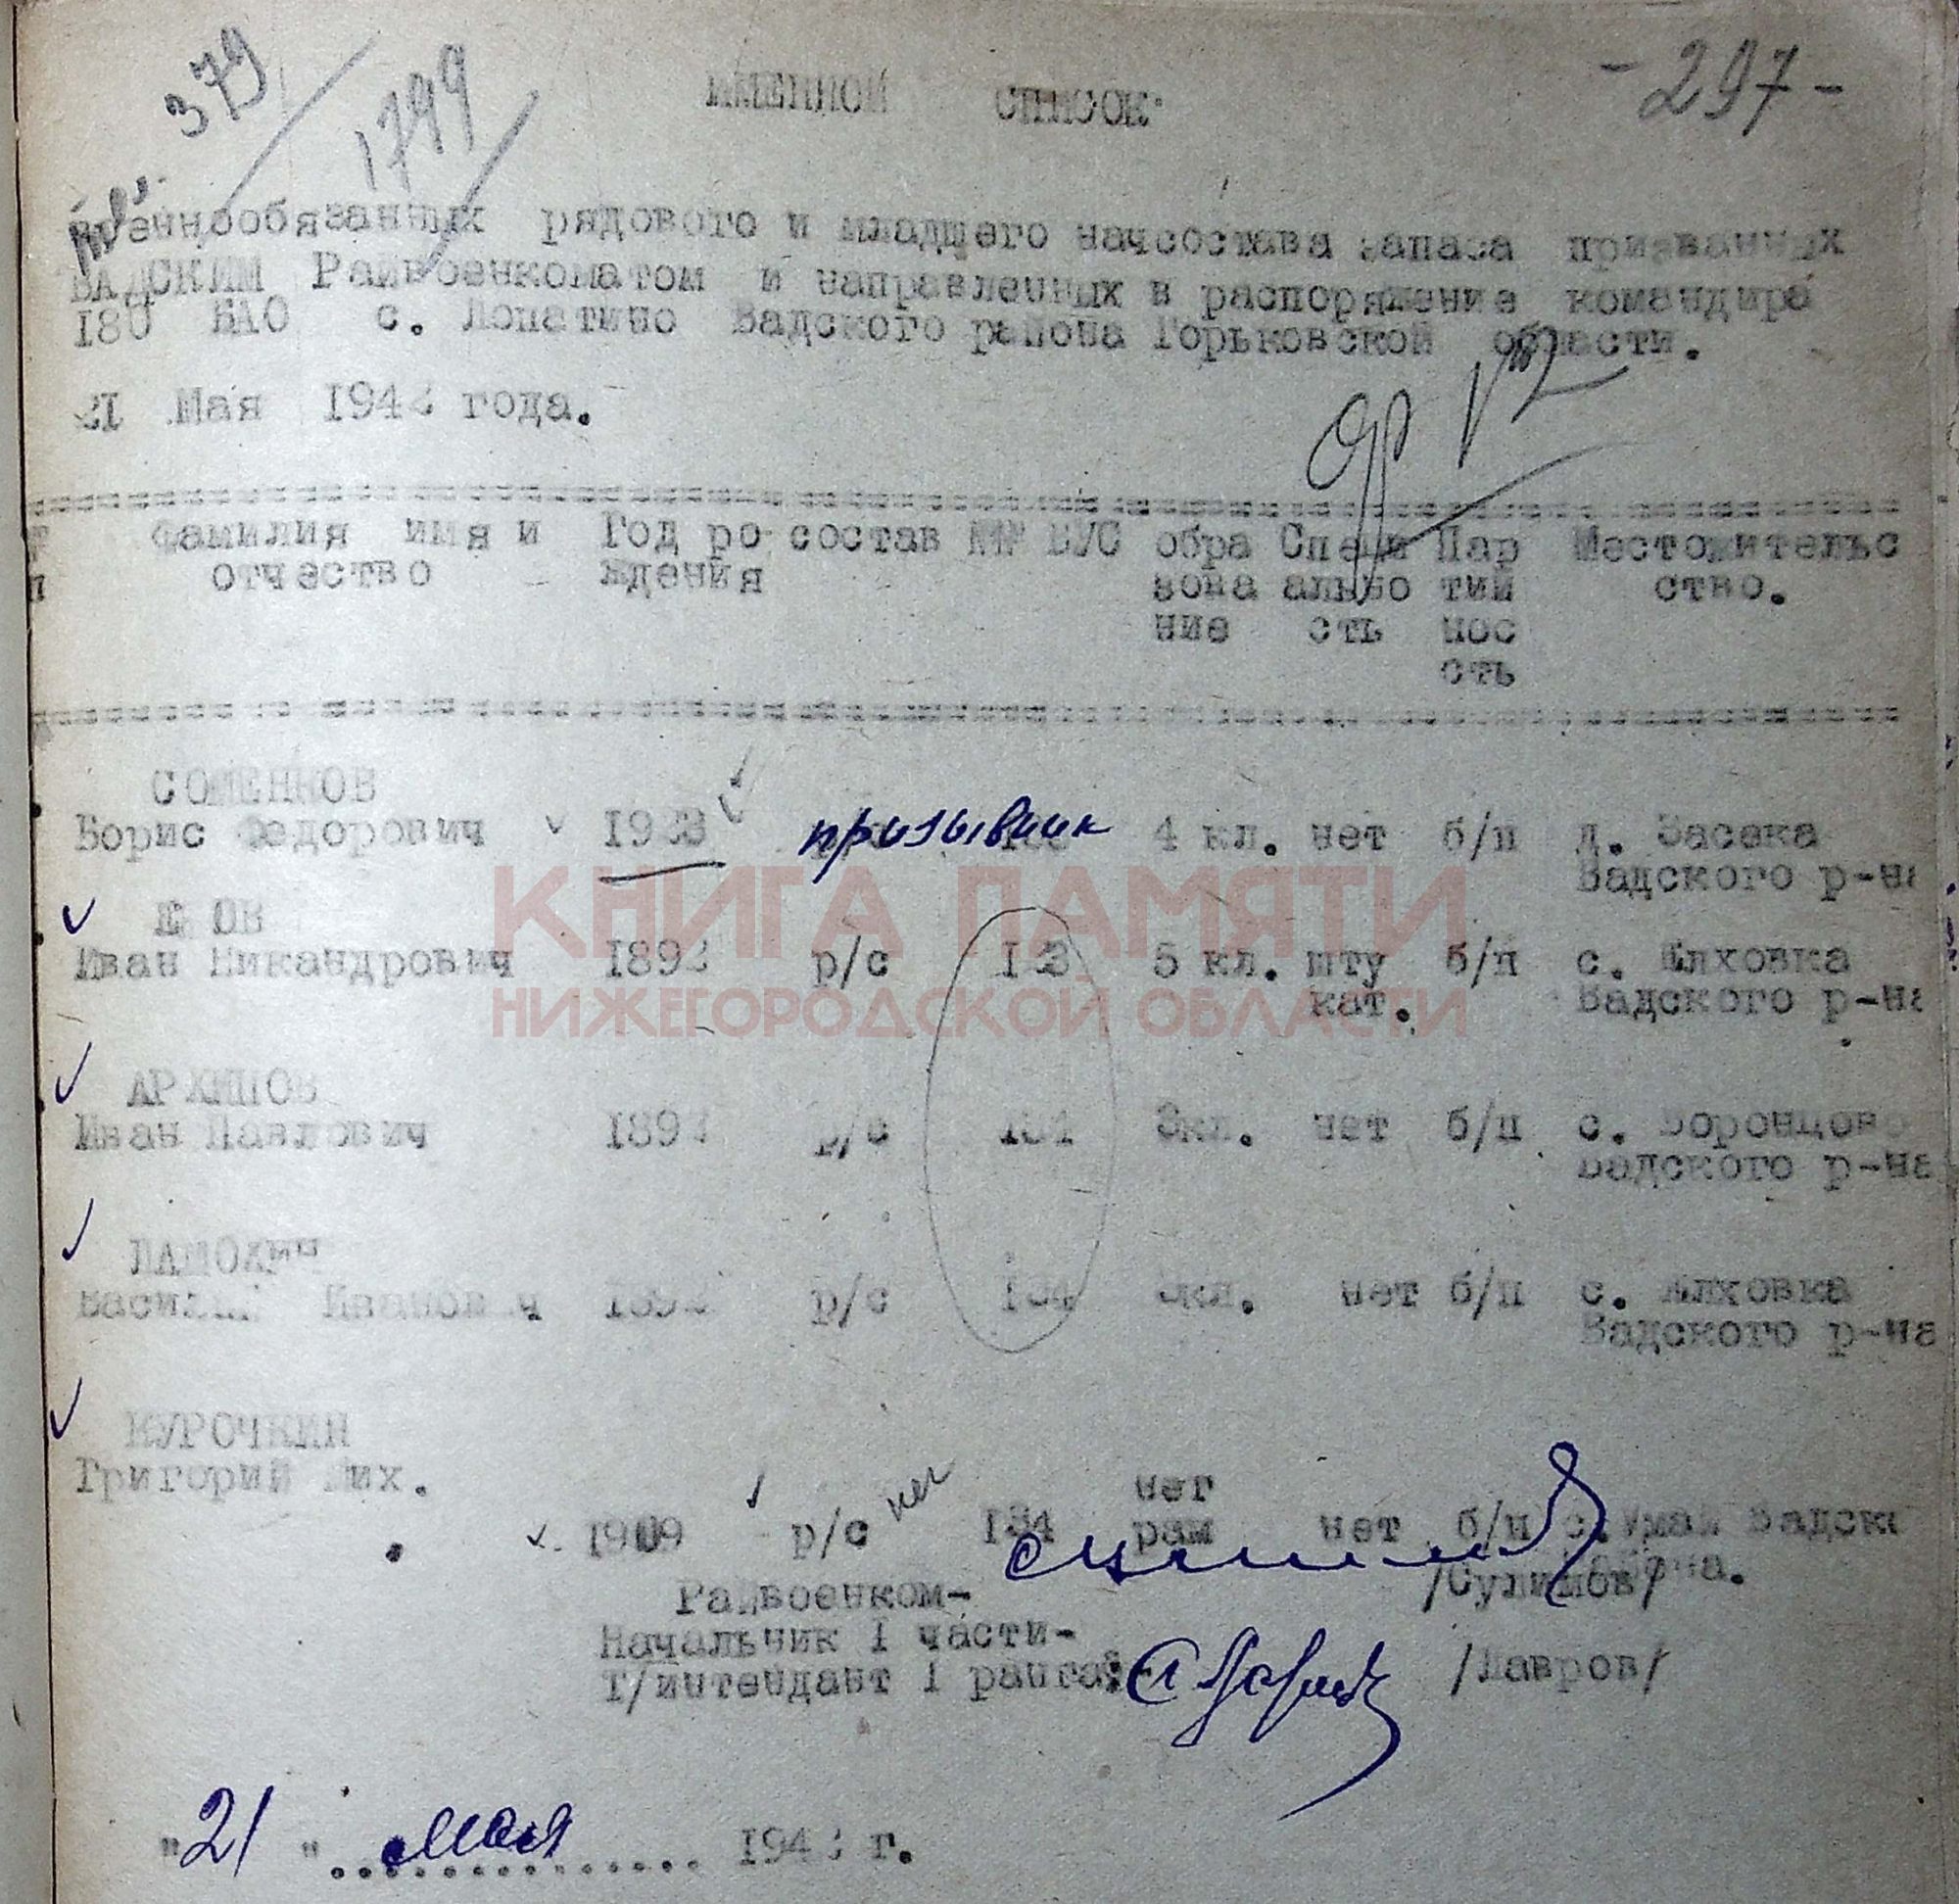 379
1799
- 297 -
ИМЕННОЙ СПИСОК
Военнообязанных рядового и младшего начсостава запаса призванных
ВАДСКИМ Райвоенкоматом и направленных в распоряжение командира
180 БАО с. Лопатино Вадского района Горьковской области.
21 Мая 1942 года.
Фамилия имя и Год ро- состав №№ ВУС обра Специ Пар Местожительс
отчество ждения зова ально тий ство.
ние сть нос
сть
СОМЕННОВ
Борис Федорович 1923 призывник 4 кл. нет б/п д. Засека
Вадского р-на
Иван Никандрович 1892 р/с 5 кл. шту б/п с. Елховка
кат. Вадского р-на
АРХИПОВ
Иван Павлович 1892 р/с 3кл. нет б/п с. Воронцово
Вадского р-на
Василий Иванович 1892 р/с 134 3кл. нет б/п с. Елховка
Вадского р-на
КУРОЧКИН
Григорий Мих.
нег
1909 р/с 134 рам нет б/п с. Умай Вадск
района.
Райвоенком- /Сулимов/
Начальник 1 части-
Т/интендант 1 ранга: /Лавров/
"21" Мая 1942 г.
КНИГА ПАМЯТИ
НИЖЕГОРОДСКОЙ ОБЛАСТИ